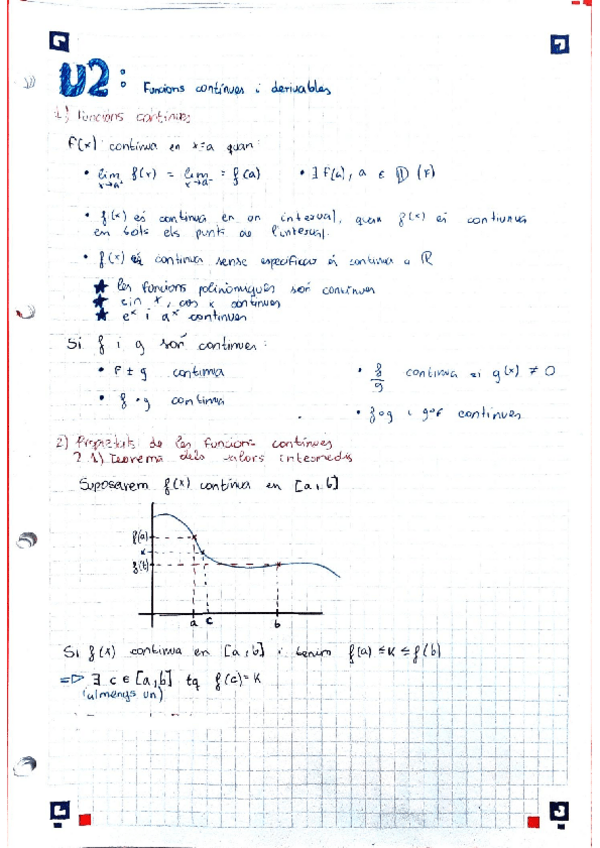 U2: Funcions contínues i derivables
1) Funcions contínues
f(x) contínua en x=a quan:
• lim x→a⁺ f(x) = lim x→a⁻ = f(a) • ∃ f(a), a ∈ D (f)
• f(x) és contínua en un interval, quan f(x) és contínua
en tots els punts de l'interval.
• f(x) és contínua sense especificar és contínua a ℝ
★ les funcions polinòmiques són contínues
★ sin x, cos x contínues
★ eˣ i aˣ contínues
Si f i g són contínues:
• f ± g contínua • f/g contínua si g(x) ≠ 0
• f · g contínua • f∘g i g∘f contínues
2) Propietats de les funcions contínues
2.1) Teorema dels valors intermedis
Suposarem f(x) contínua en [a, b]
f(a)
K
f(b)
a c b
Si f(x) contínua en [a, b] i tenim f(a) ≤ K ≤ f(b)
=> ∃ c ∈ [a, b] tq f(c) = K
(almenys un)